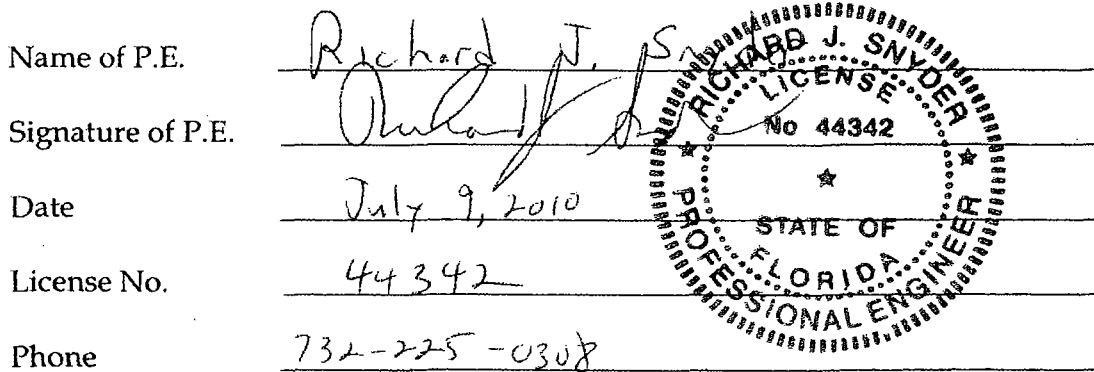 Name of P.E. Richard J. Snyder
Signature of P.E.
Date July 9, 2010
License No. 44342
Phone 732-225-0308
RICHARD J. SNYDER
LICENSE
No 44342
STATE OF
FLORIDA
PROFESSIONAL ENGINEER